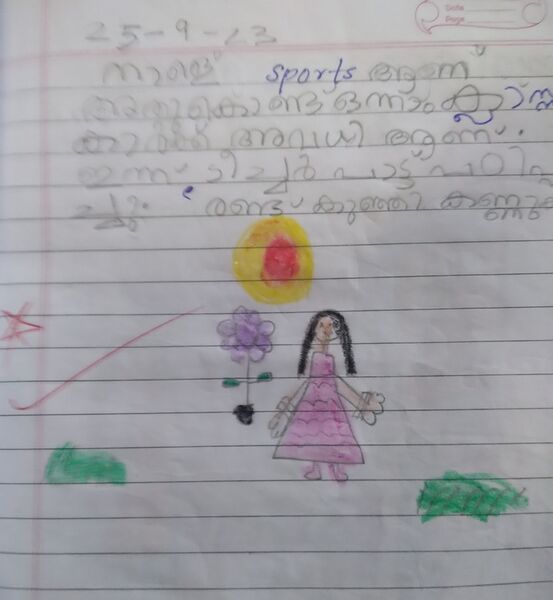 Date
Page
25-9-23
നാളെ sports ആണ്
അതുകൊണ്ട് ഒന്നാം ക്ലാസ്സ്
കാർക്ക് അവധി ആണ്.
ഇന്ന് ടീച്ചർ പാട്ട് പഠിപ്പി
ച്ചു. രണ്ട് കുഞ്ഞി കണ്ണുക